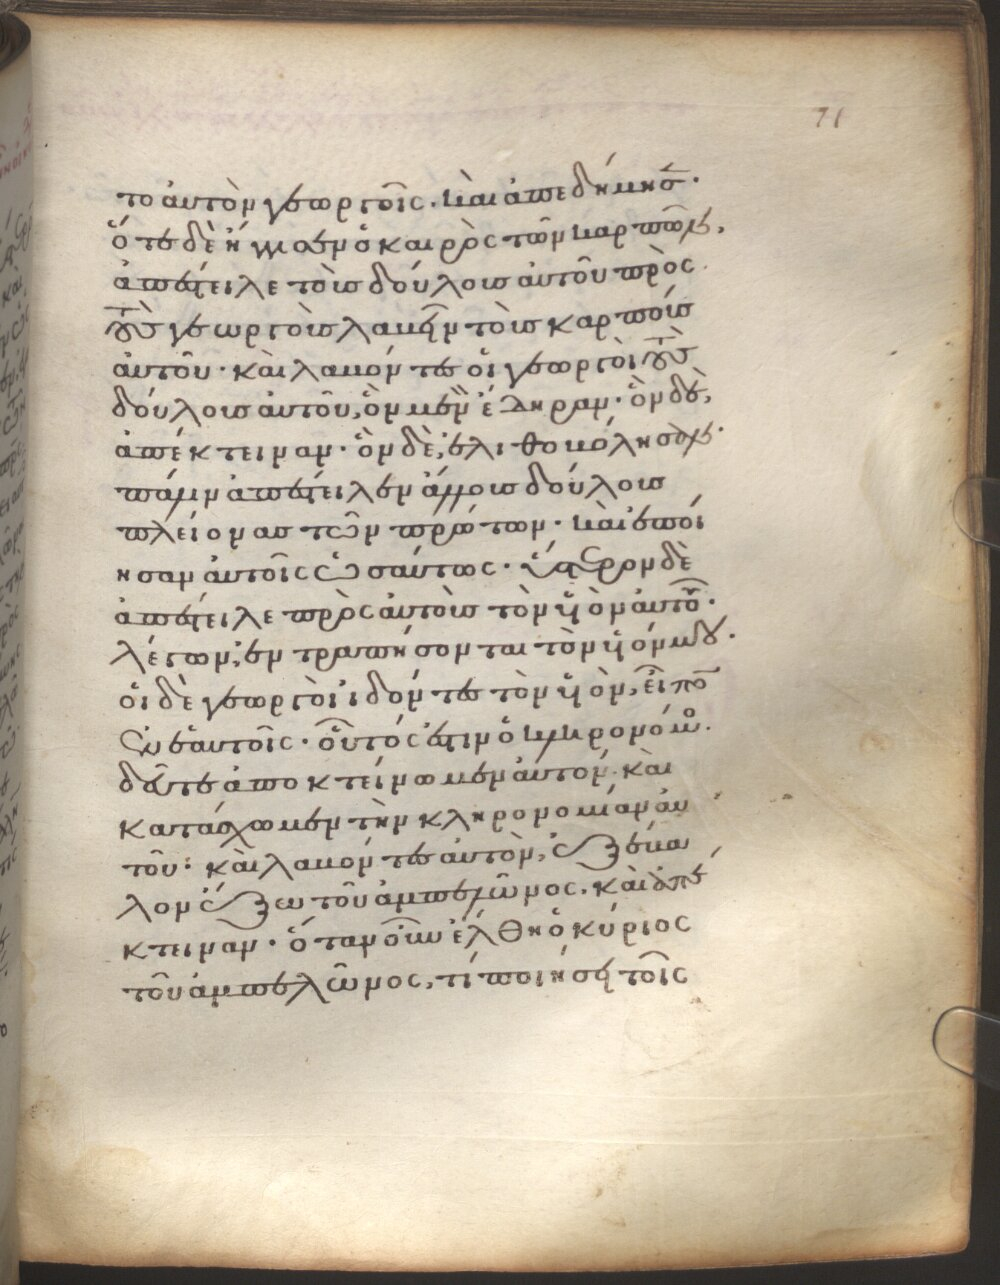 71
το αὐτὸν γεωργοῖς. καὶ ἀπεδήμησ·
ὅτε δὲ ἤγγισεν ὁ καιρὸς τῶν καρπῶν,
ἀπέστειλε τοὺς δούλους αὐτοῦ πρὸς
τοὺς γεωργοὺς λαβεῖν τοὺς καρποὺς
αὐτοῦ· καὶ λαβόντες οἱ γεωργοὶ τοὺς
δούλους αὐτοῦ, ὃν μὲν ἔδειραν· ὃν δὲ,
ἀπέκτειναν· ὃν δὲ, ἐλιθοβόλησαν·
πάλιν ἀπέστειλεν ἄλλους δούλους
πλείονας τῶν πρώτων· καὶ ἐποί
ησαν αὐτοῖς ὡσαύτως· ὕστερον δὲ
ἀπέστειλε πρὸς αὐτοὺς τὸν υἱὸν αὐτοῦ·
λέγων, ἐντραπήσονται τὸν υἱόν μου·
οἱ δὲ γεωργοὶ ἰδόντες τὸν υἱὸν, εἶπο
ἐν ἑαυτοῖς· οὗτός ἐστιν ὁ κληρονόμο·
δεῦτε ἀποκτείνωμεν αὐτόν· καὶ
κατάσχωμεν τὴν κληρονομίαν αὐ
τοῦ: καὶ λαβόντες αὐτὸν, ἐξέβα
λον ἔξω τοῦ ἀμπελῶνος, καὶ ἀπέ
κτειναν· ὅταν οὖν ἔλθη ὁ κύριος
τοῦ ἀμπελῶνος, τί ποιήσει τοῖς